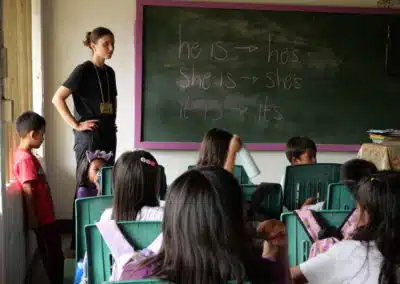 he is → he's
she is → she's
it is → it's